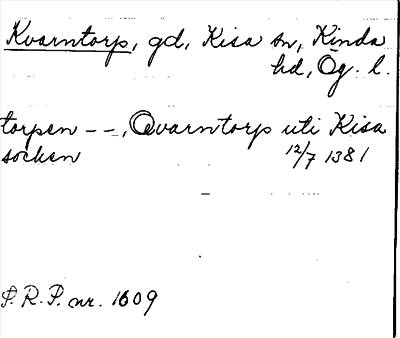 Kvarntorp, gd, Kisa sn, Kinda
hd, Ög. l.
torpen - -, Qvarntorp uti Kisa
socken 12/7 1381
S.R.P. nr. 1609